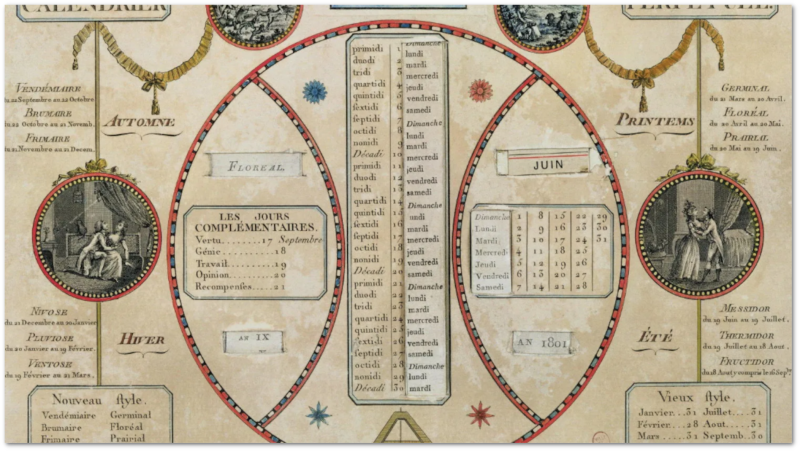 CALENDRIER
PERPÉTUEL
VENDÉMIAIRE
du 22 Septembre au 22 Octobre.
BRUMAIRE
du 22 Octobre au 21 Novemb.
FRIMAIRE
du 21 Novembre au 21 Décem.
AUTOMNE
FLOREAL
LES JOURS
COMPLÉMENTAIRES.
Vertu........17 Septembre
Génie..........18
Travail........19
Opinion........20
Recompenses....21
AN IX
NIVOSE
du 21 Decembre au 20 Janvier
PLUVIOSE
du 20 Janvier au 19 Février.
VENTOSE
du 19 Février au 21 Mars.
HIVER
Nouveau style.
Vendémiaire Germinal
Brumaire Floréal
Frimaire Prairial
primidi 1
duodi 2
tridi 3
quartidi 4
quintidi 5
sextidi 6
septidi 7
octidi 8
nonidi 9
Décadi 10
primidi 11
duodi 12
tridi 13
quartidi 14
quintidi 15
sextidi 16
septidi 17
octidi 18
nonidi 19
Décadi 20
primidi 21
duodi 22
tridi 23
quartidi 24
quintidi 25
sextidi 26
septidi 27
octidi 28
nonidi 29
Décadi 30
Dimanche
lundi
mardi
mercredi
jeudi
vendredi
samedi
Dimanche
lundi
mardi
mercredi
jeudi
vendredi
samedi
Dimanche
undi
mardi
mercredi
jeudi
vendredi
samedi
Dimanche
lundi
mardi
mercredi
jeudi
vendredi
samedi
Dimanche
lundi
mardi
JUIN
Dimanche 1 8 15 22 29
Lundi 2 9 16 23 30
Mardi 3 10 17 24 31
Mercredi 4 11 18 25
Jeudi 5 12 19 26
Vendredi 6 13 20 27
Samedi 7 14 21 28
AN 1801
GERMINAL
du 21 Mars au 20 Avril.
FLORÉAL
du 20 Avril au 20 Mai.
PRAIRIAL
du 20 Mai au 19 Juin.
PRINTEMS
MESSIDOR
du 19 Juin au 19 Juillet.
THERMIDOR
du 19 Juillet au 18 Aout.
FRUCTIDOR
du 18 Aout y compris le 16 Sep.
ÉTÉ
Vieux style.
Janvier...31 Juillet....31
Février...28 Aout.....31
Mars....31 Septemb..30